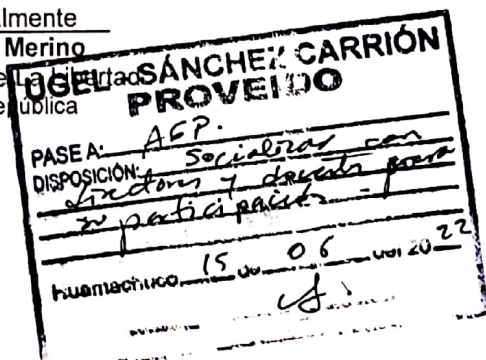 lmente
Merino
e La Libertad
epública
UGEL - SÁNCHEZ CARRIÓN
PROVEIDO
PASE A: AGP.
DISPOSICIÓN: Socializar con
directores y docentes para
su participación -
Huamachuco, 15 de 06 del 2022